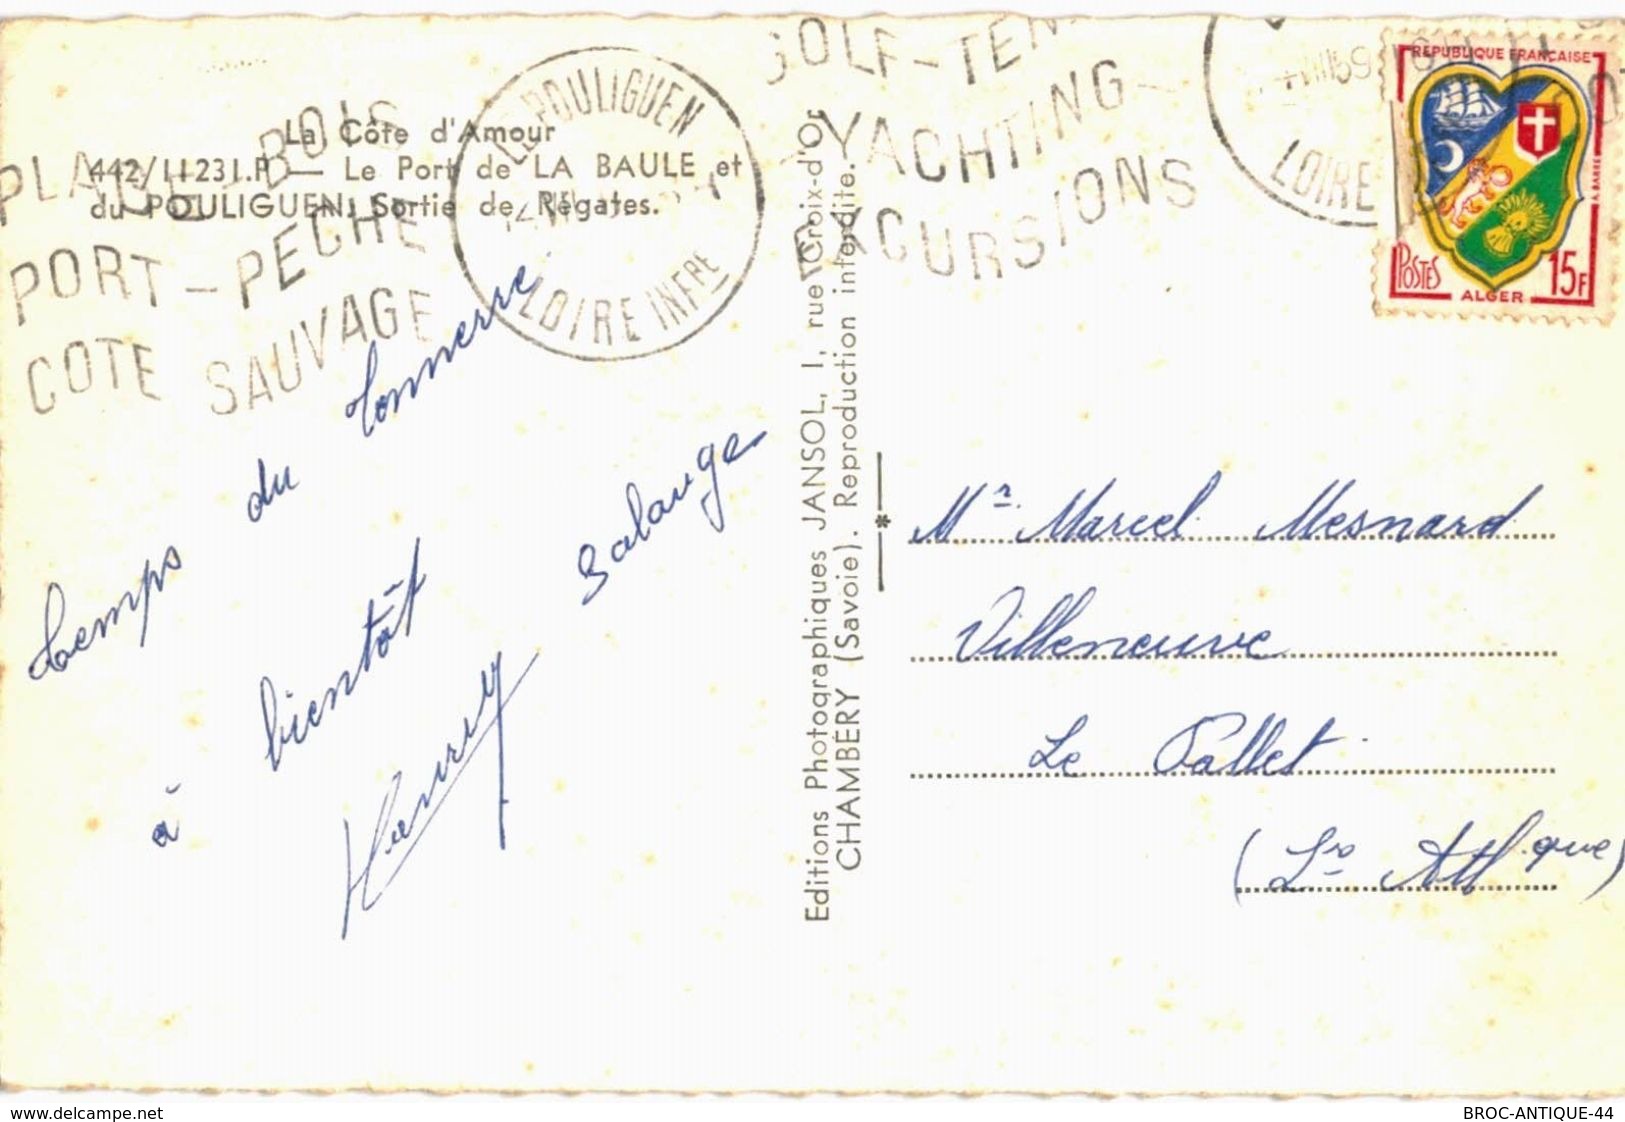 La Côte d'Amour
442/11231.P — Le Port de LA BAULE et
du POULIGUEN. Sortie de Régates.
PLAGE - BOIS
PORT - PECHE
COTE SAUVAGE
LE POULIGUEN
LOIRE INFRE
GOLF - TEN
YACHTING -
EXCURSIONS
LOIRE
REPUBLIQUE FRANÇAISE
POSTES
ALGER
15F
A. BARRE
temps du tonnerre
à bientôt
Henry Salauge
Editions Photographiques JANSOL, 1, rue Croix-d'Or
CHAMBÉRY (Savoie). Reproduction interdite.
Mr Marcel Mesnard
Villeneuve
Le Pallet
(Lre Atlque)
www.delcampe.net
BROC-ANTIQUE-44